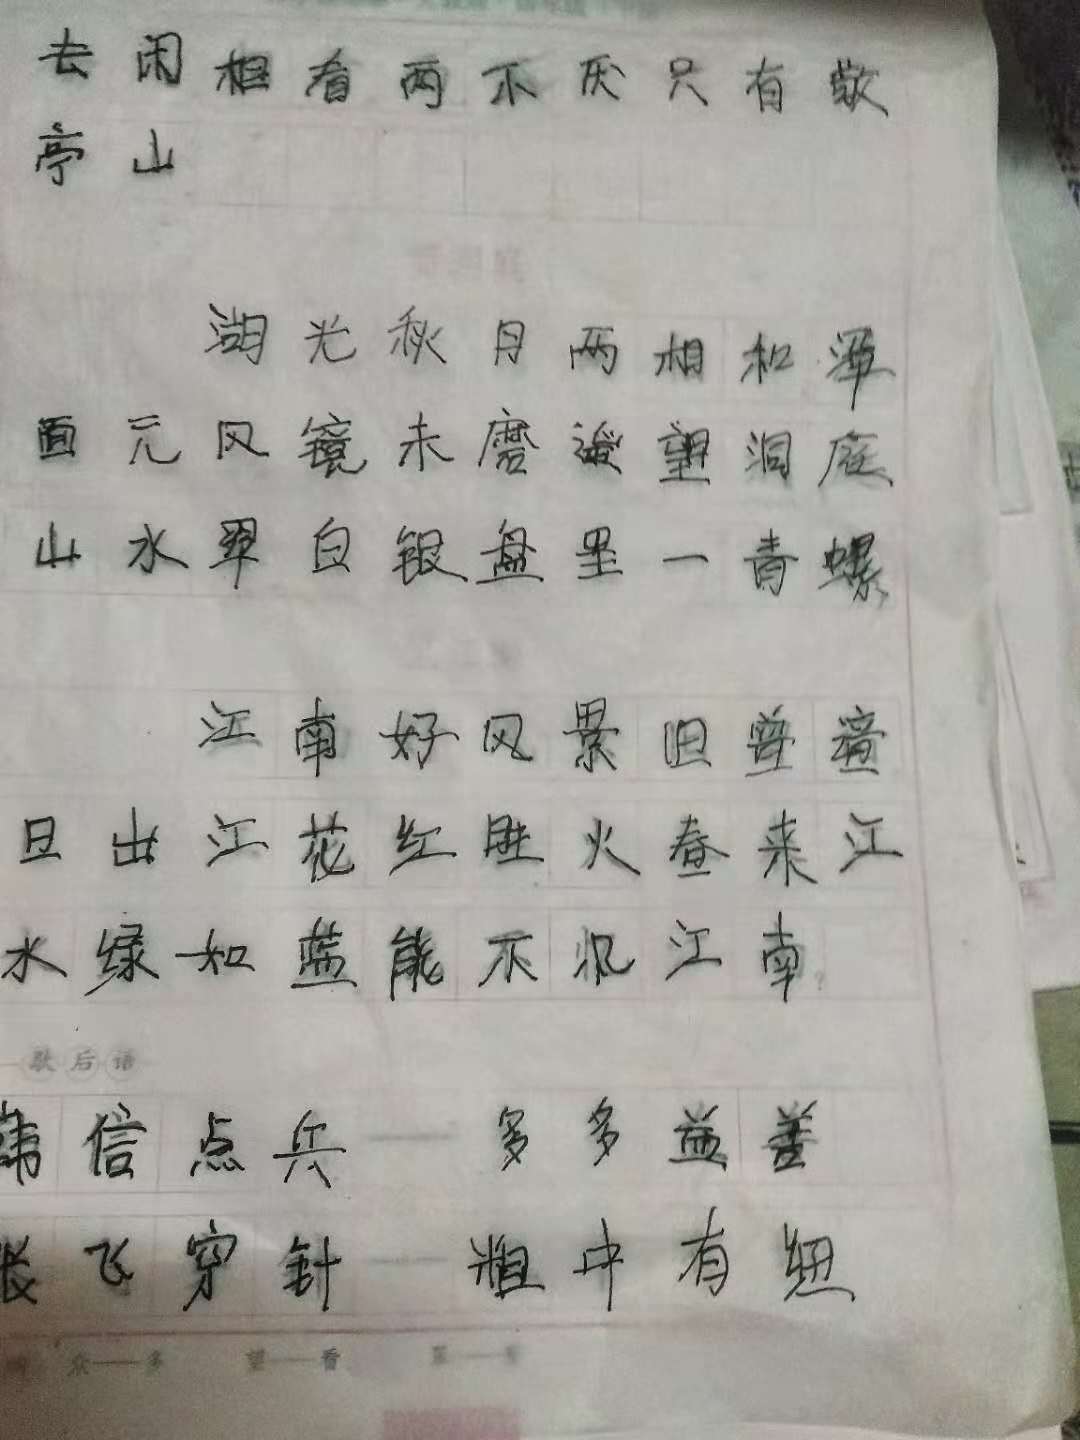 去闲相看两不厌只有敬
亭山
湖光秋月两相和潭
面元风镜未磨遥望洞庭
山水翠白银盘里一青螺
江南好风景旧曾谙
日出江花红胜火春来江
水绿如蓝能不忆江南
歇后语
韩信点兵——多多益善
张飞穿针——粗中有细
众——多 望——看